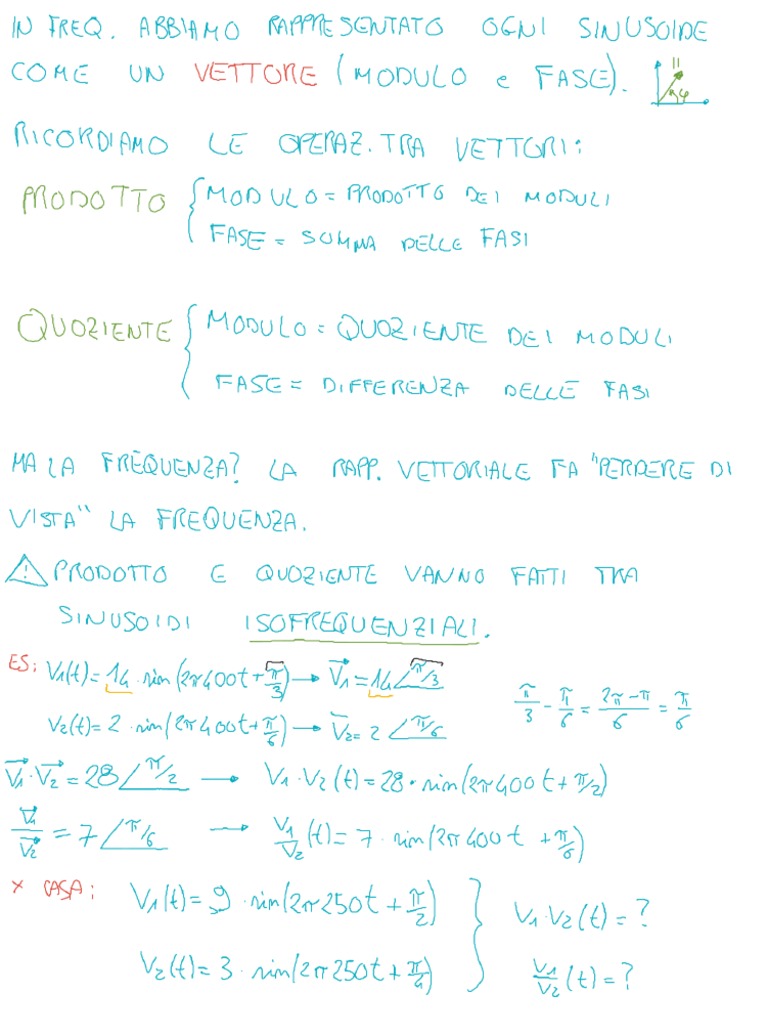 IN FREQ. ABBIAMO RAPPRESENTATO OGNI SINUSOIDE
COME UN VETTORE (MODULO e FASE). || φ
RICORDIAMO LE OPERAZ. TRA VETTORI:
PRODOTTO { MODULO = PRODOTTO DEI MODULI
FASE = SOMMA DELLE FASI
QUOZIENTE { MODULO = QUOZIENTE DEI MODULI
FASE = DIFFERENZA DELLE FASI
MA LA FREQUENZA? LA RAPP. VETTORIALE FA "PERDERE DI
VISTA" LA FREQUENZA.
⚠ PRODOTTO E QUOZIENTE VANNO FATTI TRA
SINUSOIDI ISOFREQUENZIALI.
ES: V₁(t) = 14 · sin(2π400t + π/3) → V⃗₁ = 14 ∠π/3
π/3 - π/6 = (2π-π)/6 = π/6
V₂(t) = 2 · sin(2π400t + π/6) → V̅₂ = 2 ∠π/6
V⃗₁ · V⃗₂ = 28 ∠π/2 → V₁·V₂(t) = 28 · sin(2π400t + π/2)
V⃗₁/V⃗₂ = 7 ∠π/6 → V₁/V₂(t) = 7 · sin(2π400t + π/6)
x CASA: V₁(t) = 9 · sin(2π250t + π/2) } V₁·V₂(t) = ?
V₂(t) = 3 · sin(2π250t + π/4) V₁/V₂(t) = ?